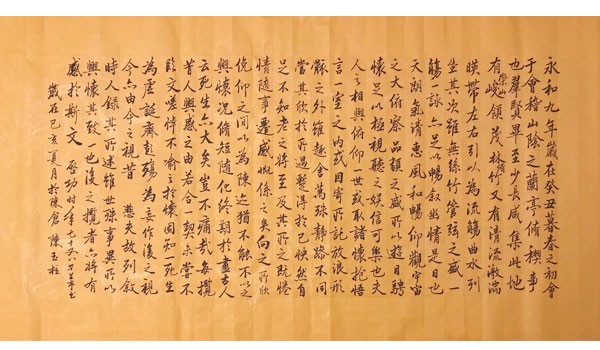 永和九年歲在癸丑暮春之初會
于會稽山陰之蘭亭脩稧事
也群賢畢至少長咸集此地
有崇山峻領茂林脩竹又有清流激湍
暎帶左右引以為流觴曲水列
坐其次雖無絲竹管弦之盛一
觴一詠亦足以暢敘幽情是日也
天朗氣清惠風和暢仰觀宇宙
之大俯察品類之盛所以遊目騁
懷足以極視聽之娛信可樂也夫
人之相與俯仰一世或取諸懷抱悟
言一室之內或因寄所託放浪形
骸之外雖趣舍萬殊靜躁不同
當其欣於所遇暫得於己怏然自
足不知老之將至及其所之既惓
情隨事遷感慨係之矣向之所欣
俛仰之間以為陳迹猶不能不以之
興懷況脩短隨化終期於盡古人
云死生亦大矣豈不痛哉每攬
昔人興感之由若合一契未嘗不
臨文嗟悼不喻之於懷固知一死生
為虛誕齊彭殤為妄作後之視
今亦由今之視昔 悲夫故列敘
時人錄其所述雖世殊事異所以
興懷其致一也後之攬者亦將有
感於斯文 啓功時年七十六
歲在己亥夏月於陳倉 陳玉柱